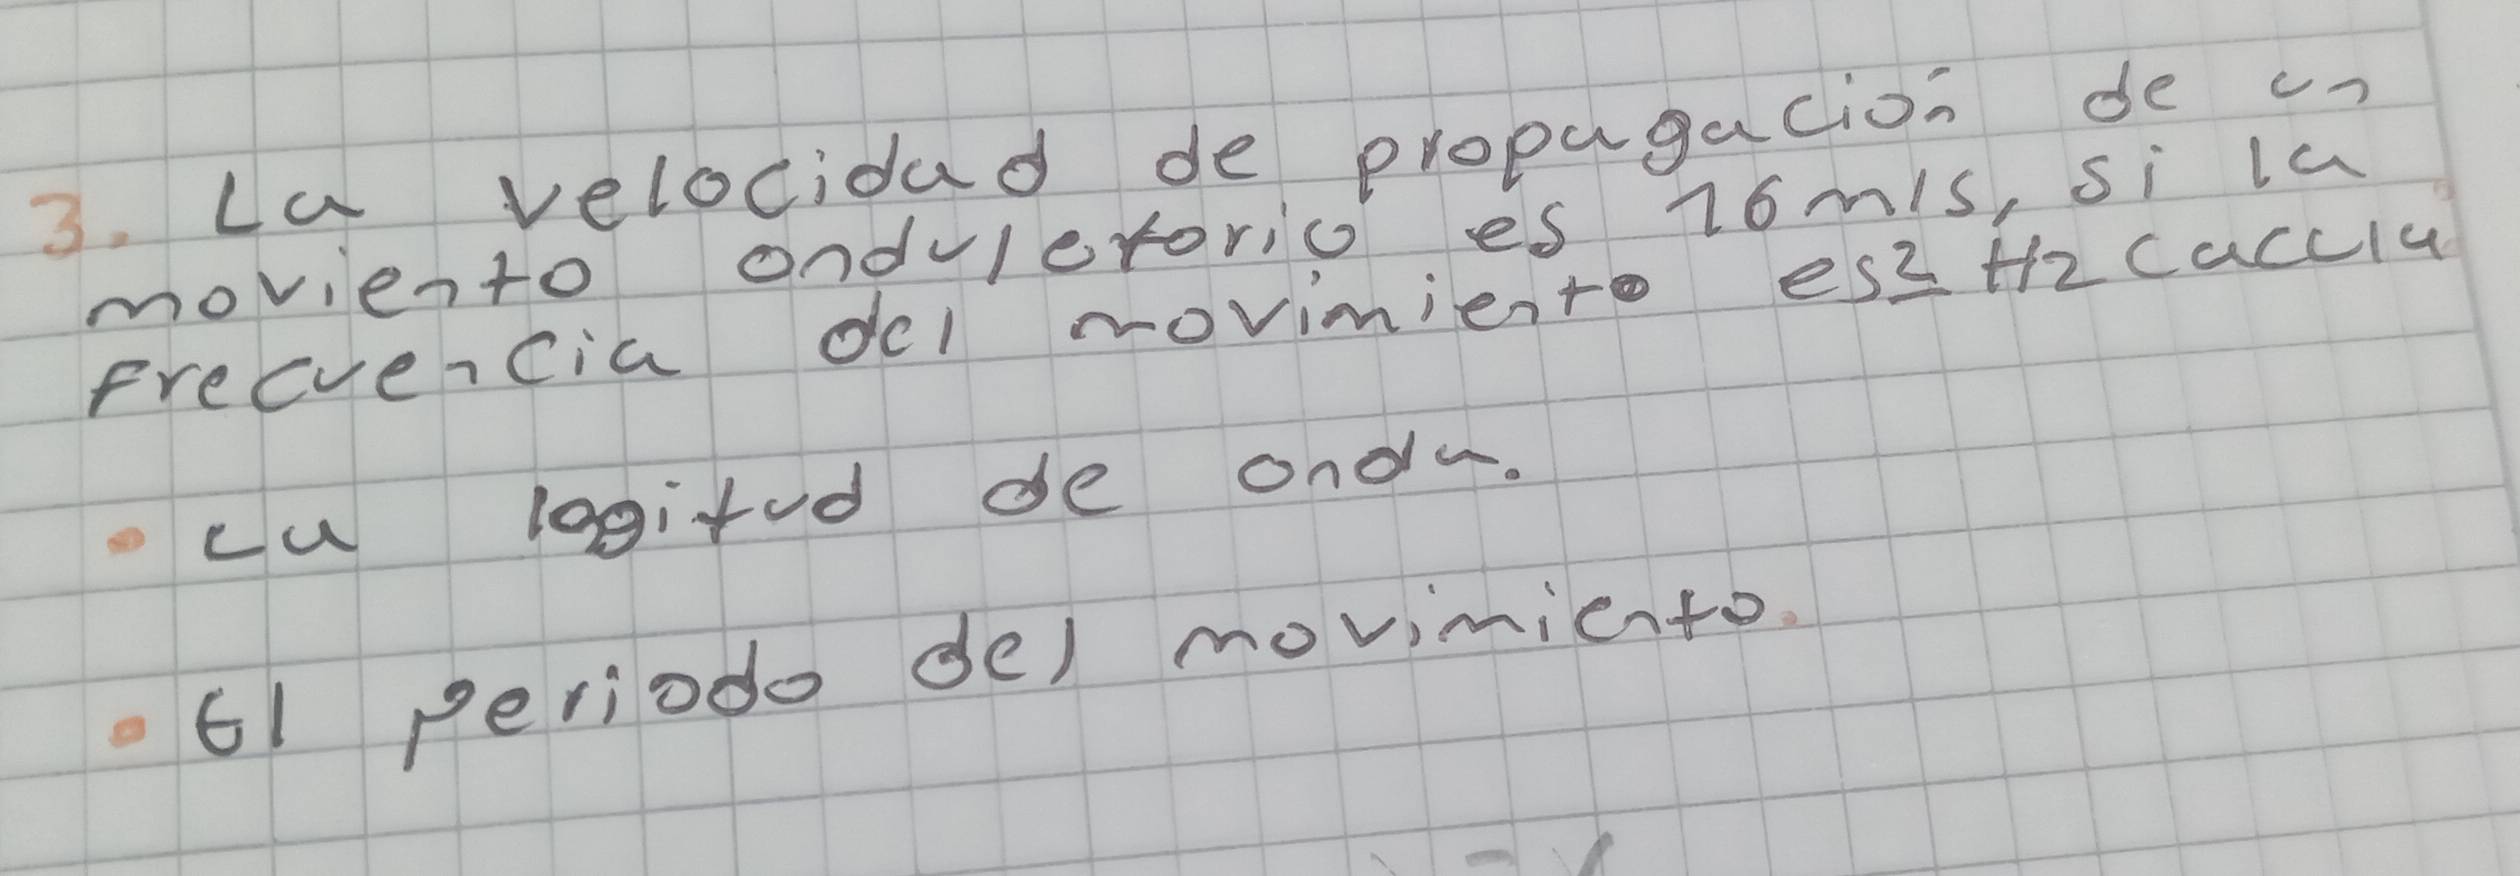 3. La velocidad de propagación de un
moviento ondulatorio es 16 m/s, si la
frecuencia del movimiento es 2 Hz caccula
• La logitud de onda.
• El periodo del movimiento.